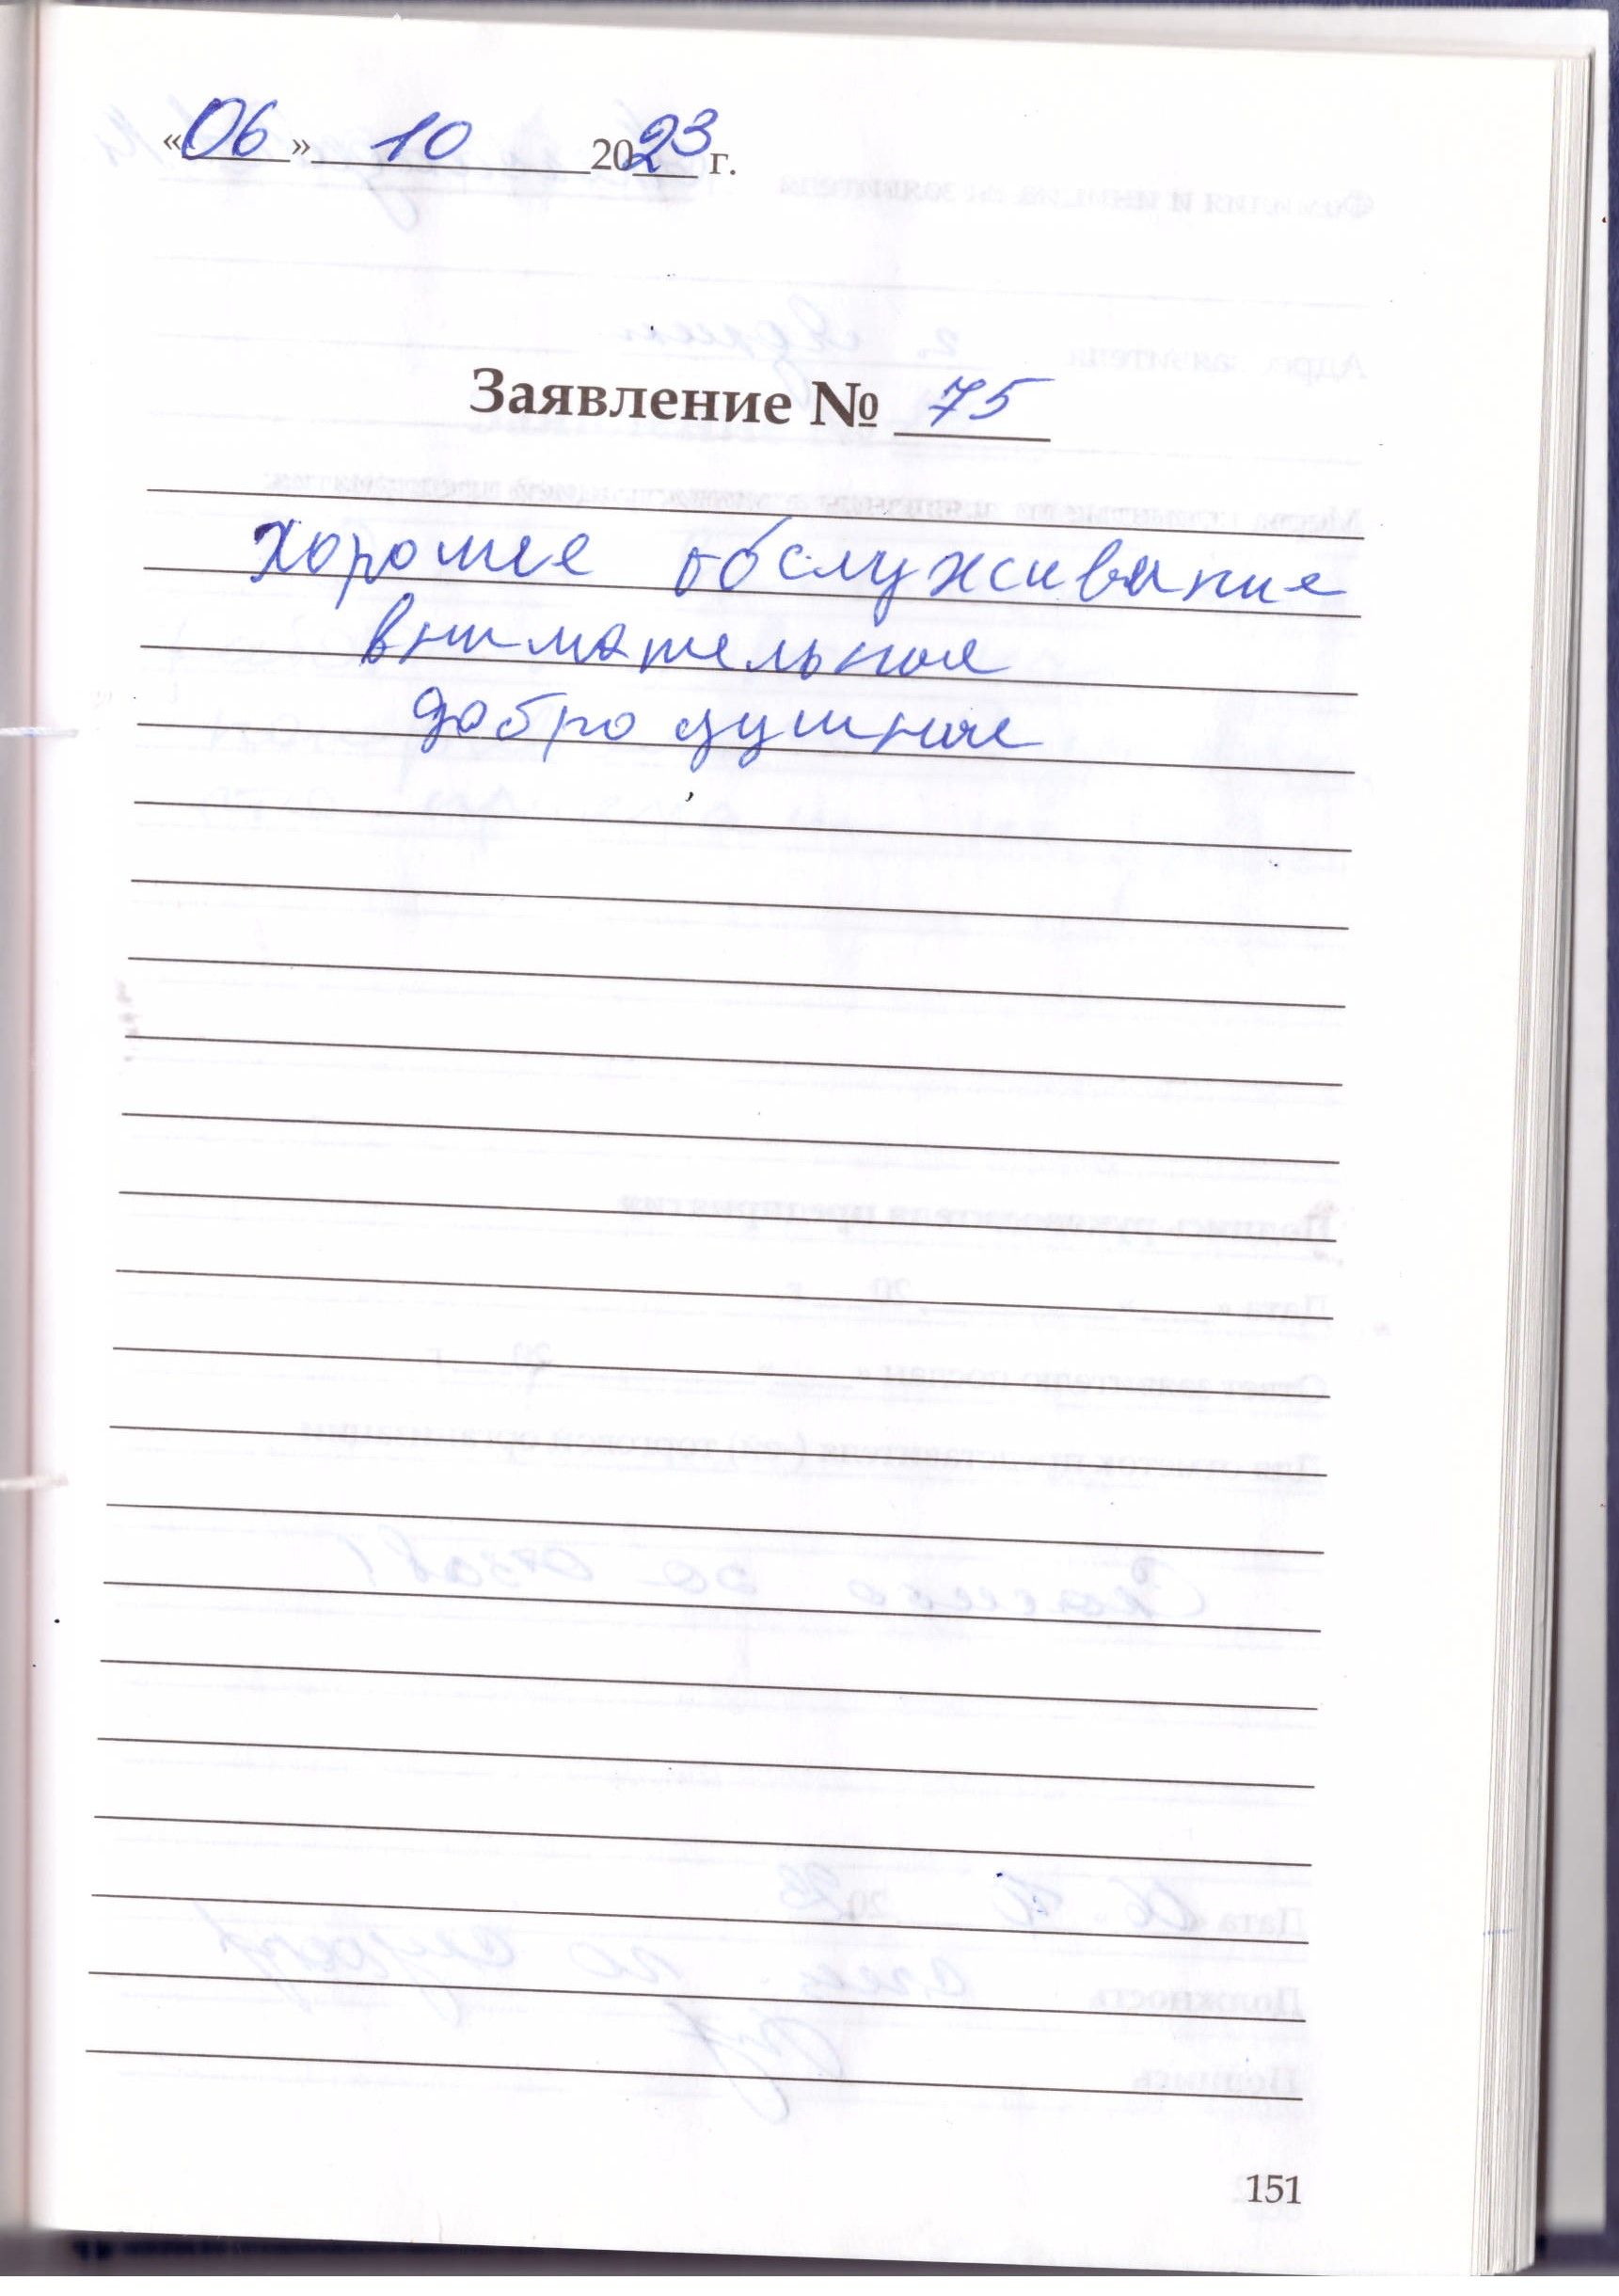 «06» 10 2023 г.
Заявление № 75
хорошее обслуживание
внимательное
добро душное
151